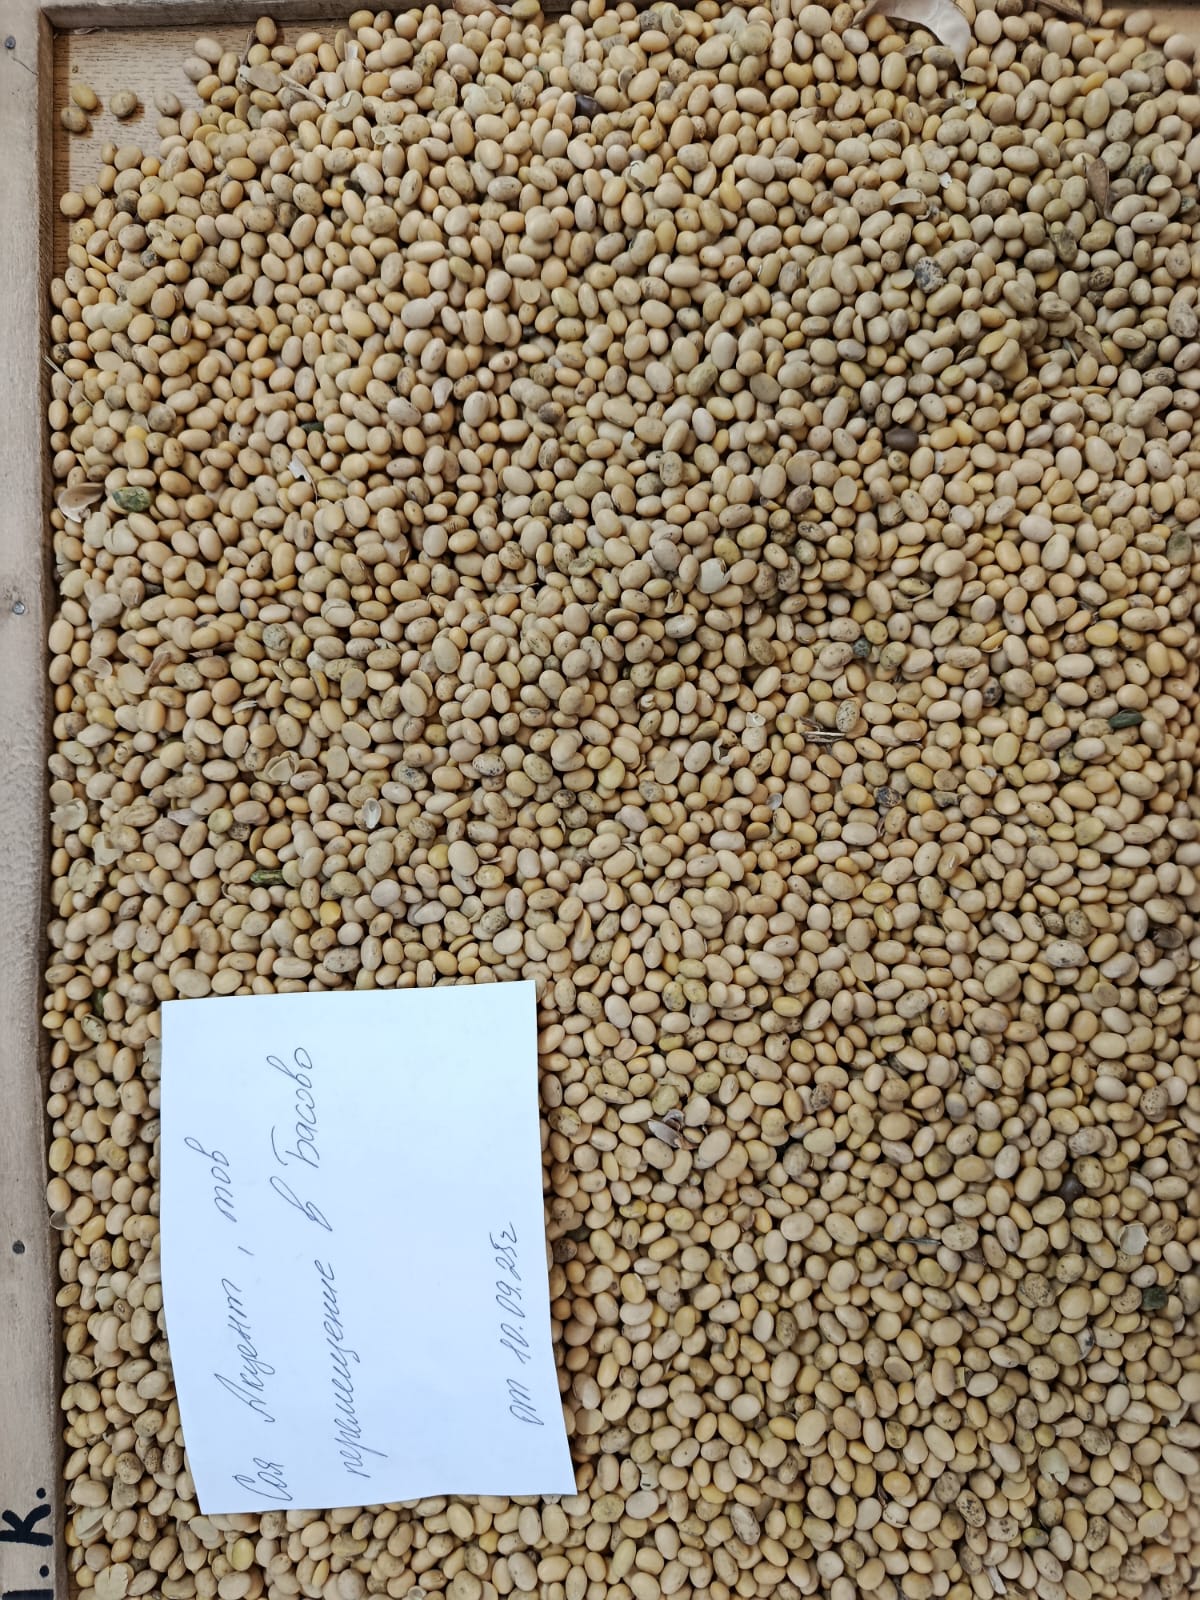 Соя Акцент, тов
перемещение в Басово
от 10.09.25г
.К.